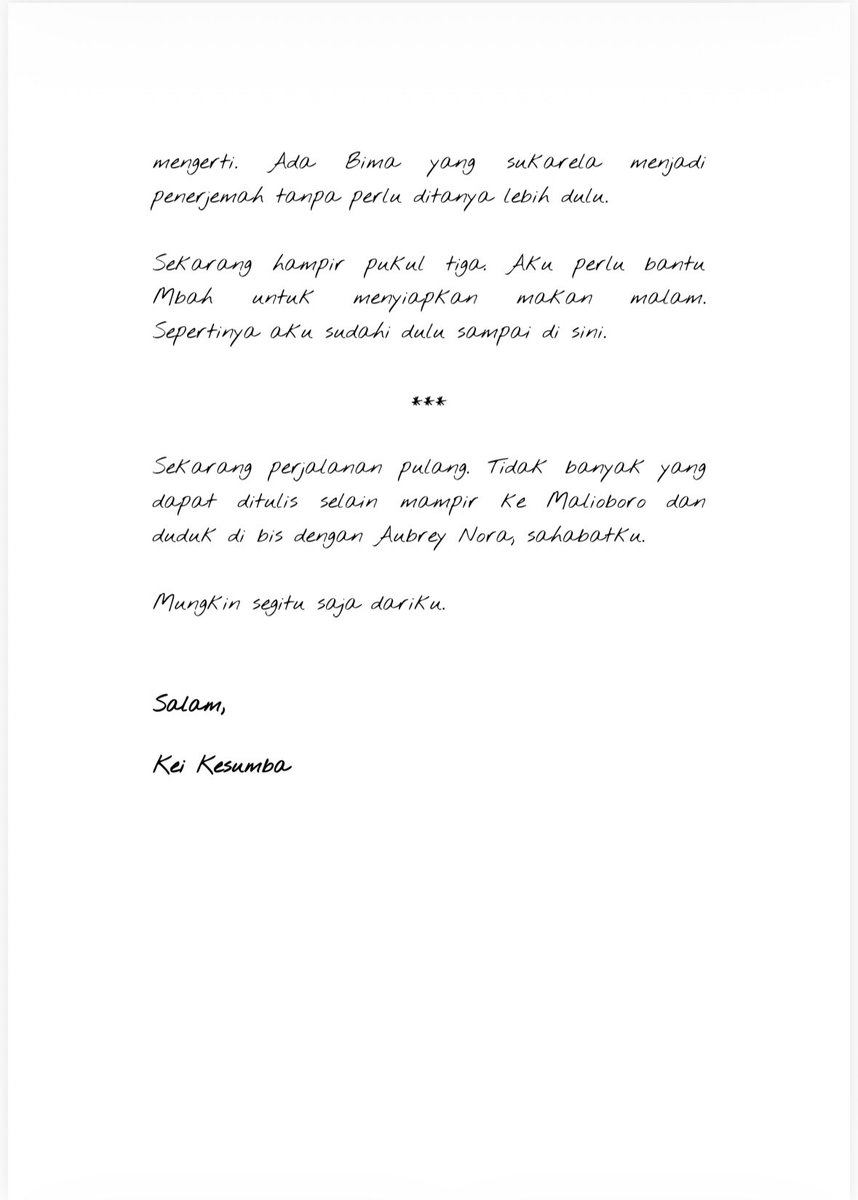 mengerti. Ada Bima yang sukarela menjadi
penerjemah tanpa perlu ditanya lebih dulu.
Sekarang hampir pukul tiga. Aku perlu bantu
Mbah untuk menyiapkan makan malam.
Sepertinya aku sudahi dulu sampai di sini.
***
Sekarang perjalanan pulang. Tidak banyak yang
dapat ditulis selain mampir ke Malioboro dan
duduk di bis dengan Aubrey Nora, sahabatku.
Mungkin segitu saja dariku.
Salam,
Kei Kesumba